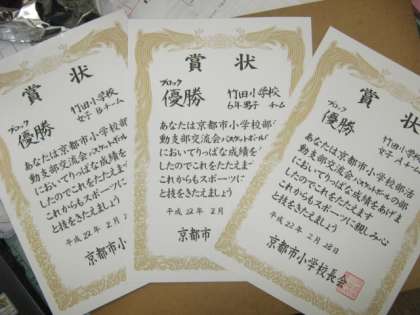 賞状
ブロック
優勝
竹田小学校
女子Bチーム
あなたは京都市小学校部
動支部交流会バスケット
においてりっぱな成績を
したのでこれをたたえま
これからもスポーツに親
と技をきたえましょう
平成22年2月
京都市小
賞状
ブロック
優勝
竹田小学校
6年男子チーム
あなたは京都市小学校部
動支部交流会バスケットボール
においてりっぱな成績を
したのでこれをたたえま
これからもスポーツに
と技をきたえましょう
平成22年2月
京都市
賞状
ブロック
優勝
竹田小学校
女子Aチーム
あなたは京都市小学校部活
動支部交流会バスケットボールの部
においてりっぱな成績をあげま
したのでこれをたたえます
これからもスポーツに親しみ心
と技をきたえましょう
平成22年2月
京都市小学校長会